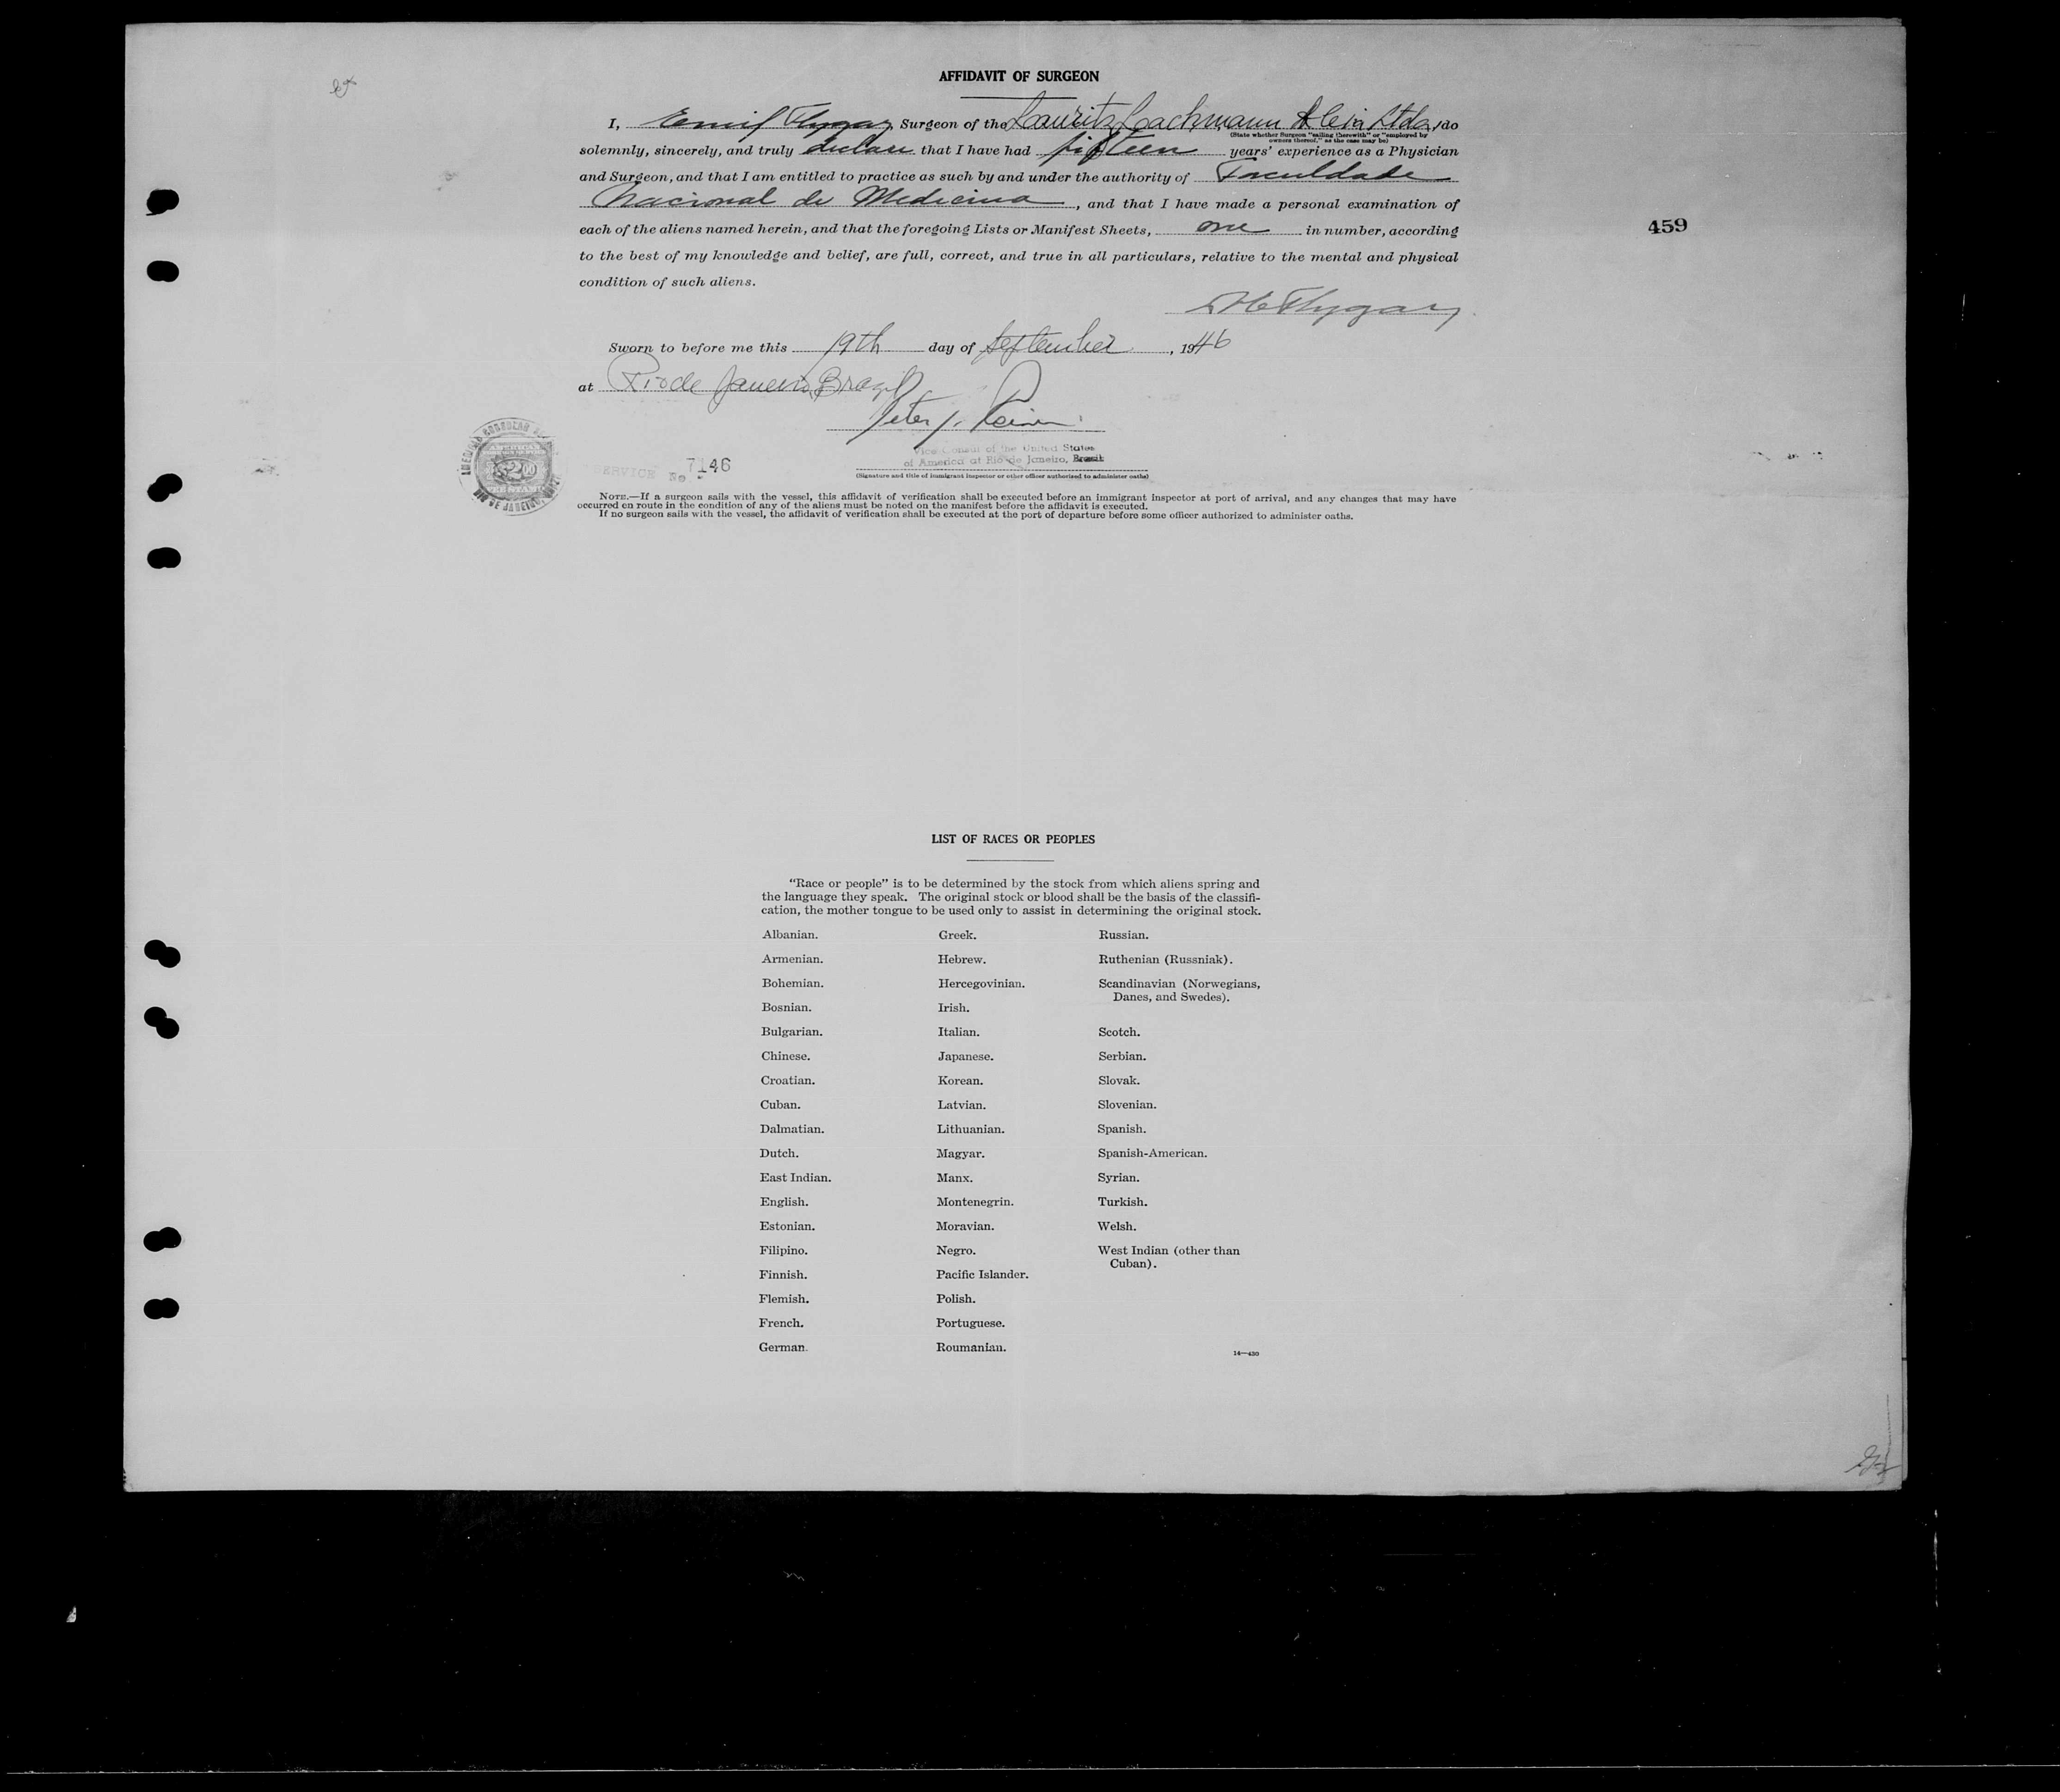 AFFIDAVIT OF SURGEON
I, Emil Flygar, Surgeon of the Lauritz Lachmann & Cia Ltda, do
(State whether Surgeon "sailing therewith" or "employed by
owners thereof," as the case may be)
solemnly, sincerely, and truly declare that I have had fifteen years' experience as a Physician
and Surgeon, and that I am entitled to practice as such by and under the authority of Faculdade
Nacional de Medicina, and that I have made a personal examination of
each of the aliens named herein, and that the foregoing Lists or Manifest Sheets, one in number, according
459
to the best of my knowledge and belief, are full, correct, and true in all particulars, relative to the mental and physical
condition of such aliens.
Flygar
Sworn to before me this 19th day of September, 1946
at Rio de Janeiro, Brazil
Peter J.
Vice Consul of the United States
of America at Rio de Janeiro, Brazil
SERVICE No 7146
(Signature and title of immigrant inspector or other officer authorized to administer oaths)
NOTE.—If a surgeon sails with the vessel, this affidavit of verification shall be executed before an immigrant inspector at port of arrival, and any changes that may have
occurred en route in the condition of any of the aliens must be noted on the manifest before the affidavit is executed.
If no surgeon sails with the vessel, the affidavit of verification shall be executed at the port of departure before some officer authorized to administer oaths.
LIST OF RACES OR PEOPLES
"Race or people" is to be determined by the stock from which aliens spring and
the language they speak. The original stock or blood shall be the basis of the classifi-
cation, the mother tongue to be used only to assist in determining the original stock.
Albanian.
Armenian.
Bohemian.
Bosnian.
Bulgarian.
Chinese.
Croatian.
Cuban.
Dalmatian.
Dutch.
East Indian.
English.
Estonian.
Filipino.
Finnish.
Flemish.
French.
German.
Greek.
Hebrew.
Hercegovinian.
Irish.
Italian.
Japanese.
Korean.
Latvian.
Lithuanian.
Magyar.
Manx.
Montenegrin.
Moravian.
Negro.
Pacific Islander.
Polish.
Portuguese.
Roumanian.
Russian.
Ruthenian (Russniak).
Scandinavian (Norwegians,
Danes, and Swedes).
Scotch.
Serbian.
Slovak.
Slovenian.
Spanish.
Spanish-American.
Syrian.
Turkish.
Welsh.
West Indian (other than
Cuban).
14—430